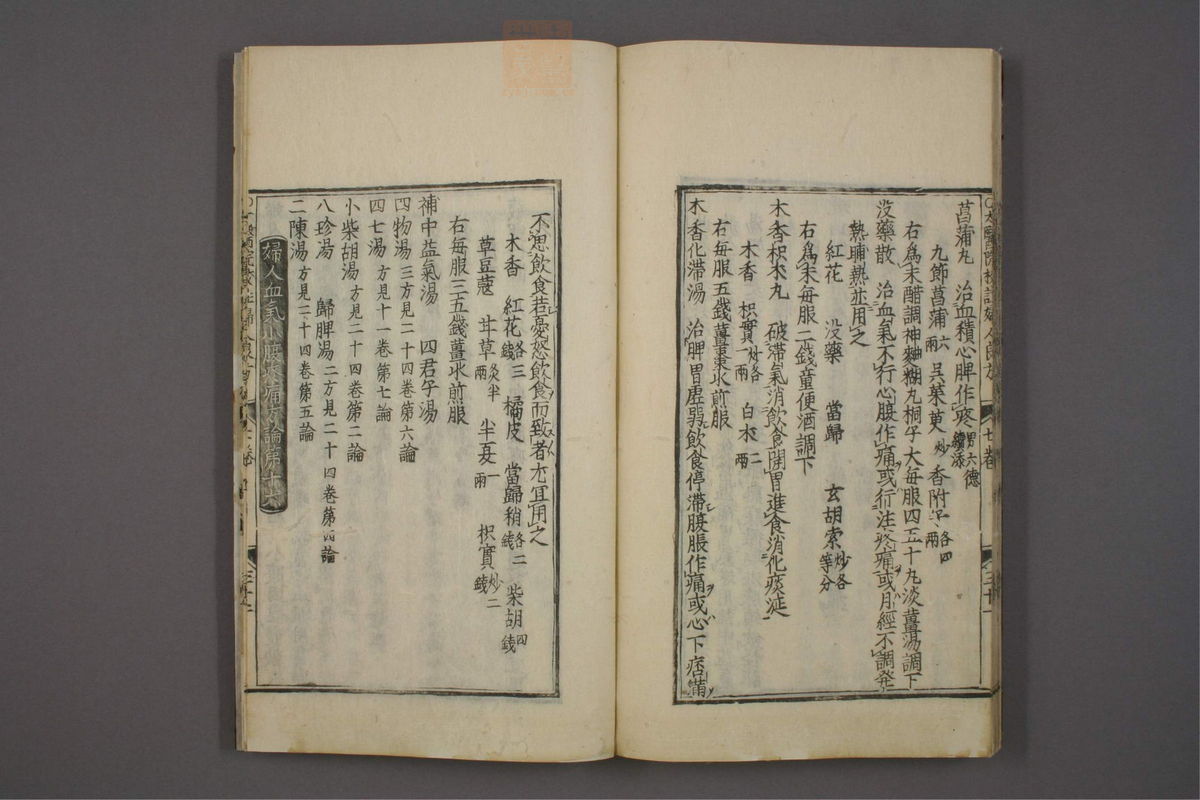 菖蒲丸 治血積心脾作疼 男六德續添
九節菖蒲六兩 吳茱萸炒 香附子各四兩
右為末醋調神麯糊丸桐子大每服四五十丸淡薑湯調下
没藥散 治血氣不行心腹作痛或行注疼痛或月經不調発
熱晡熱並用之
紅花 没藥 當歸 玄胡索炒各等分
右為末每服二錢童便酒調下
木香枳朮丸 破滯氣消飲食開胃進食消化痰涎
木香 枳實炒各一兩 白朮二兩
右每服五錢薑棗水煎服
木香化滯湯 治脾胃虛弱飲食停滯腹脹作痛或心下痞滿
不思飲食若憂怒飲食而致者尤宜用之
木香 紅花各三錢 橘皮 當歸稍各二錢 柴胡四錢
草豆蔻 甘草炙半兩 半夏一兩 枳實炒二錢
右每服三五錢薑水煎服
補中益氣湯 四君子湯
四物湯三方見二十四卷第六論
四七湯方見十一卷第七論
小柴胡湯方見二十四卷第二論
八珍湯 歸脾湯二方見二十四卷第四論
二陳湯方見二十四卷第五論
婦人血氣小腹疼痛方論第十六